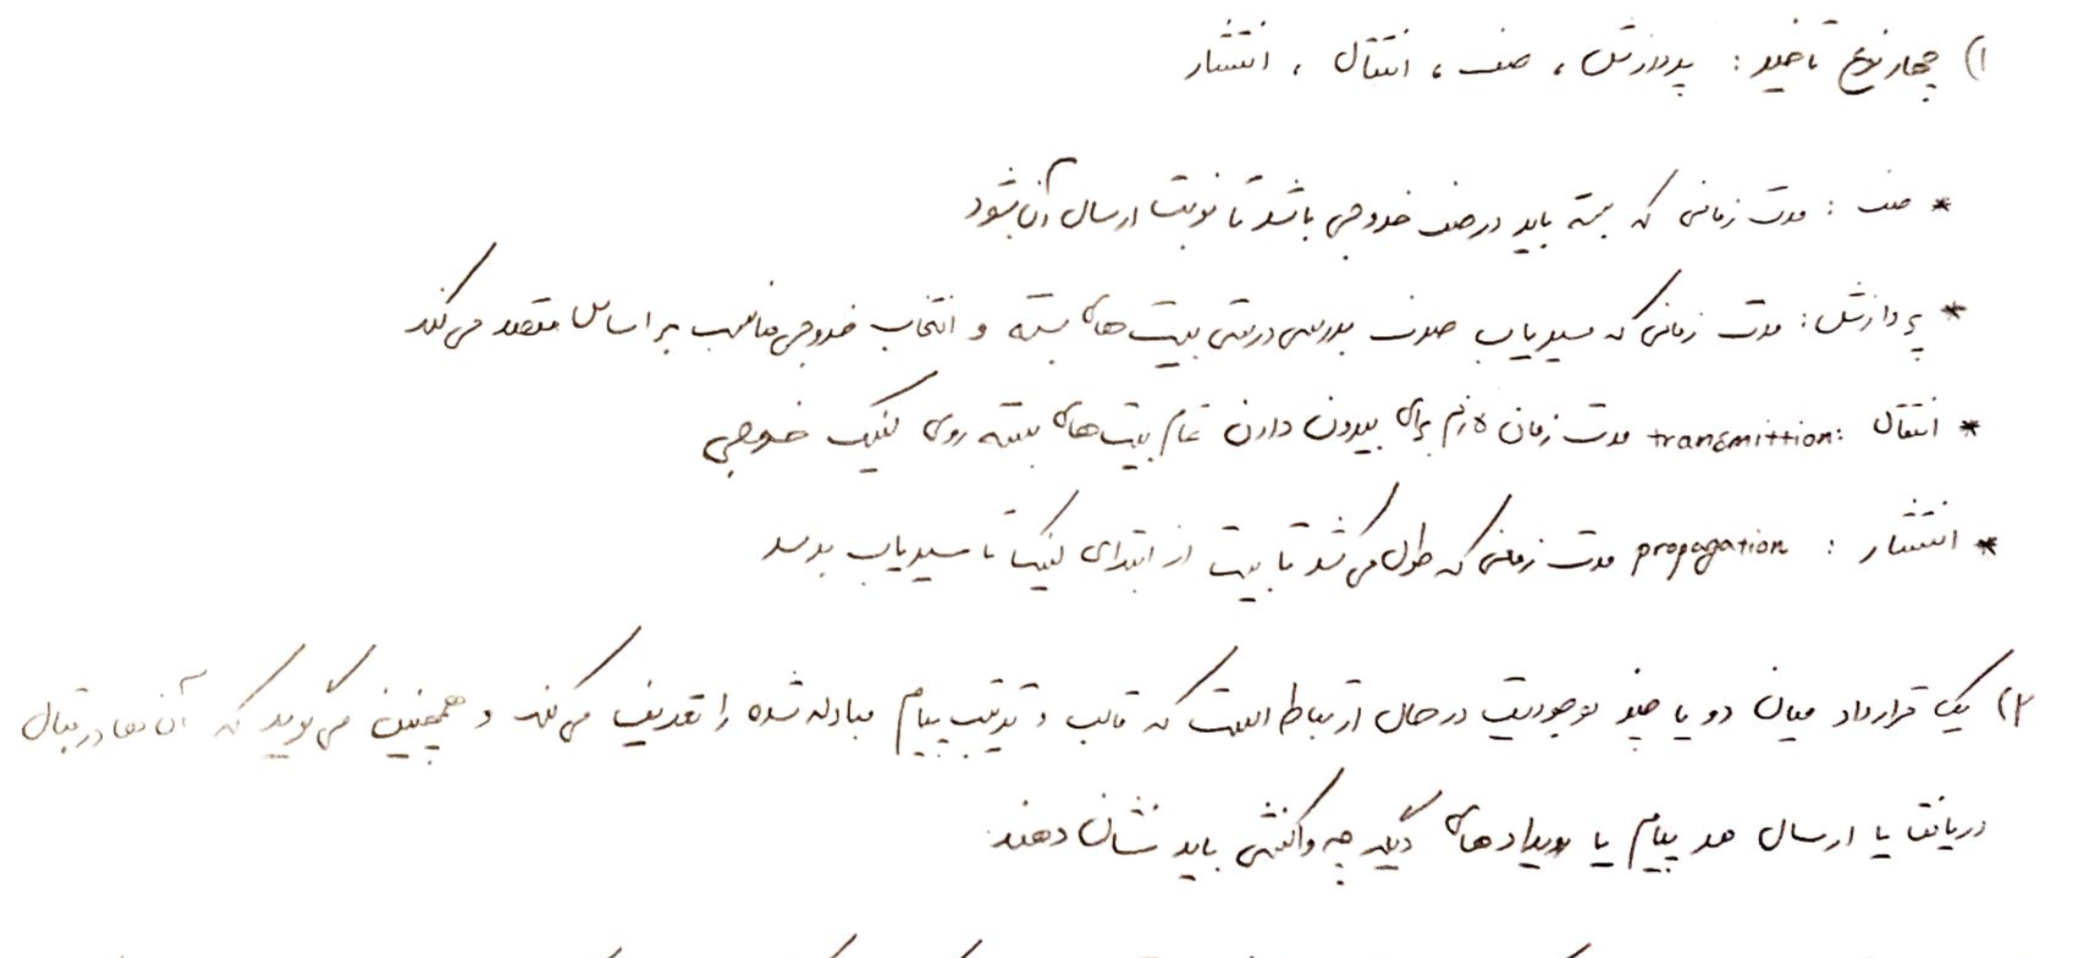 ۱) چهار نوع تاخیر : پردازش ، صف ، انتقال ، انتشار
* صف : مدت زمانی که بسته باید در صف خروجی باشد تا نوبت ارسال آن شود
* پردازش : مدت زمانی که مسیریاب صرف بررسی درستی بیت‌های بسته و انتخاب خروجی مناسب بر اساس مقصد می‌کند
* انتقال transmittion: مدت زمان لازم برای بیرون دادن تمام بیت‌های بسته روی لینک خروجی
* انتشار : propagation مدت زمانی که طول می‌کشد تا بیت از ابتدای لینک تا مسیریاب برسد
۲) یک قرارداد میان دو یا چند موجودیت در حال ارتباط است که قالب و ترتیب پیام مبادله شده را تعریف می‌کند و همچنین می‌گوید که آن‌ها در قبال
دریافت یا ارسال هر پیام یا رویدادهای دیگر چه واکنشی باید نشان دهند